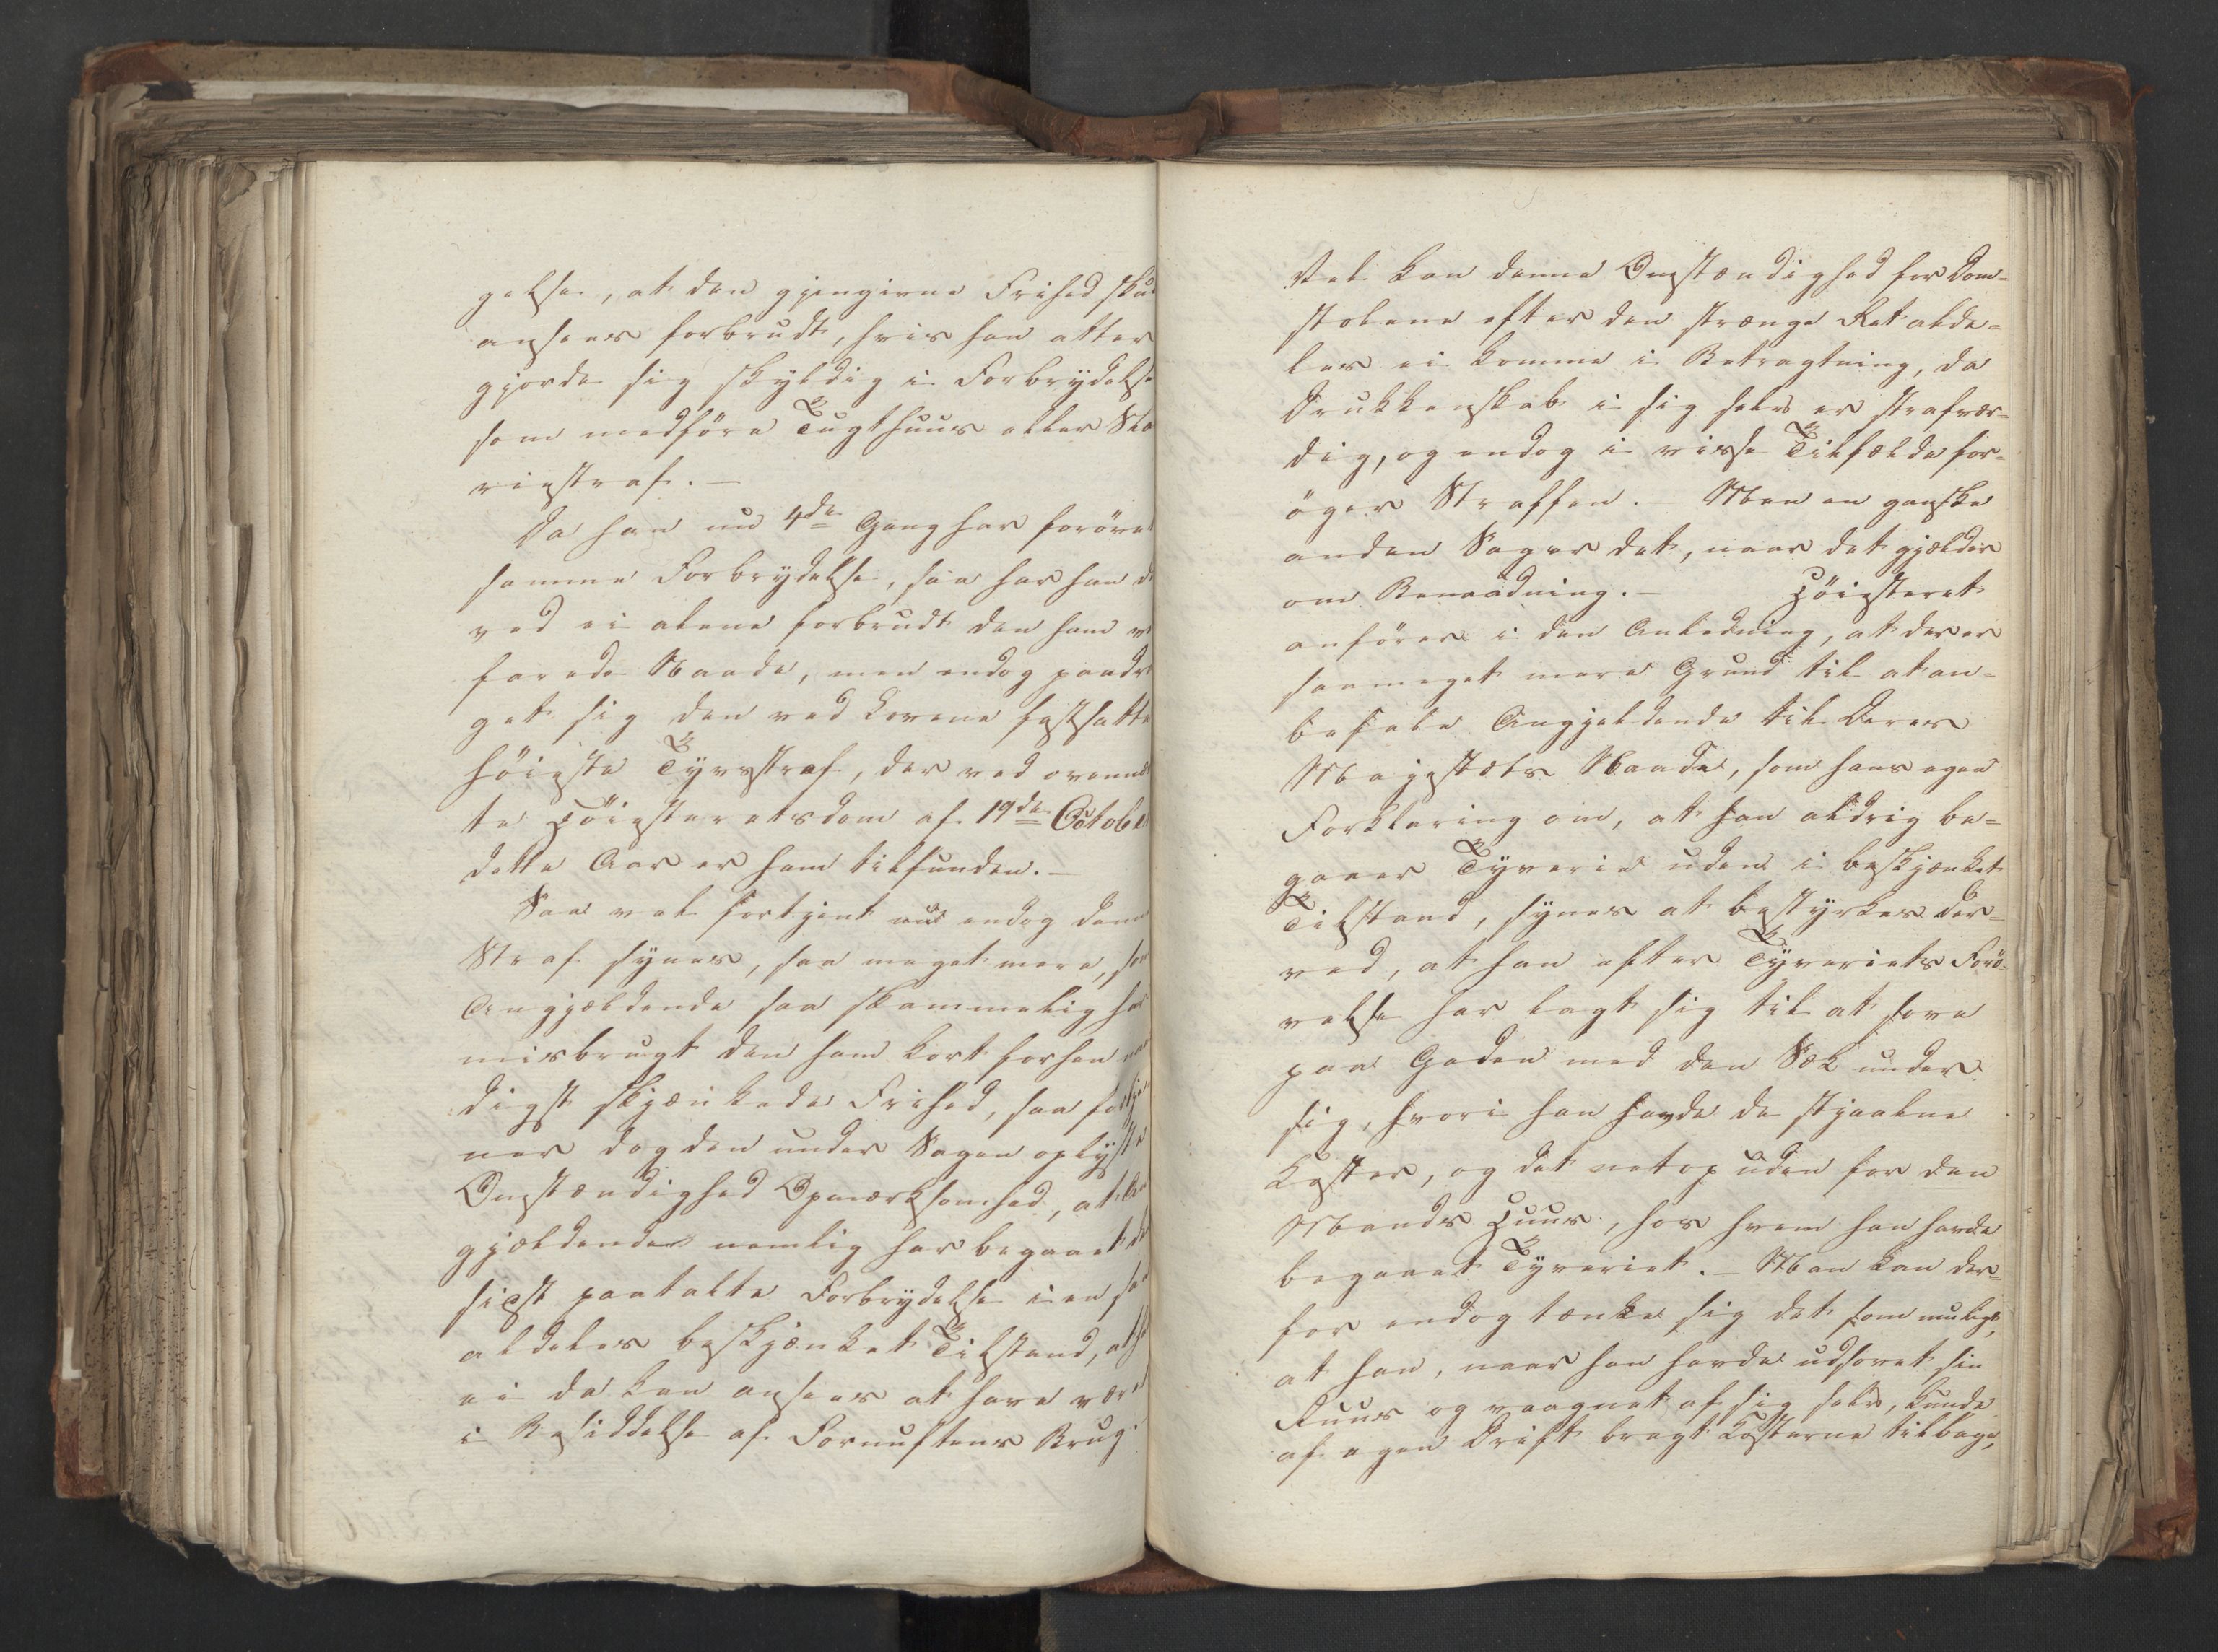 gelse, at den gjengivne Frihed skul
ansees forbrudt, hvis han atter
gjorde sig skyldig i Forbrydelse
som medföre Tugthuus eller Sla
veriestraf. —
Da han nu 4de Gang har forövet
samme Forbrydelse, saa har han d
ved ei alene forbrudt den ham ve
farede Naade, men endog paadra
get sig den ved Lovene fastsatte
höieste Tyvsstraf, der ved ovennæv
te Höiesteretsdom af 19de October
dette Aar er ham tilfunden. —
Saa vel fortjent nu endog denne
Straf synes, saa meget mere, som
Angjældende saa skammelig har
misbrugt den ham kort forhen naa
digst skjænkede Frihed, saa fortje
ner dog den under Sagen oplyste
Omstændighed Opmærksomhed, at An
gjældende nemlig har begaaet de
sidst paatalte Forbrydelse i en saa
aldeles beskjænket Tilstand, at han
ei da kan ansees at have været
i Besiddelse af Fornuftens Brug.
Vel kan denne Omstændighed for Dom-
stolene efter den strænge Ret alde-
les ei komme i Betragtning, da
Drukkenskab i sig selv er strafvær-
dig, og endog i visse Tilfælde for-
öger Straffen. — Men en ganske
anden Sag er det, naar det gjælder
om Benaadning. — Höiesteret
anförer i den Anledning, at der er
saameget mere Grund til at an-
befale Angjeldende til Deres
Majestæts Naade, som hans egen
Forklaring om, at han aldrig be-
gaaer Tyverie uden i beskjænket
Tilstand, synes at bestyrkes der-
ved, at han efter Tyveriets Forö-
velse har lagt sig til at sove
paa Gaden med den Sæk under
sig, hvori han havde de stjaalne
Koster, og det netop uden for den
Mands Huus, hos hvem han havde
begaaet Tyveriet. — Man kan der-
for endog tænke sig det som muligt,
at han, naar han havde udsovet sin
Ruus og vaagnet af sig selv, kunde
af egen Drift bragt Kosterne tilbage,